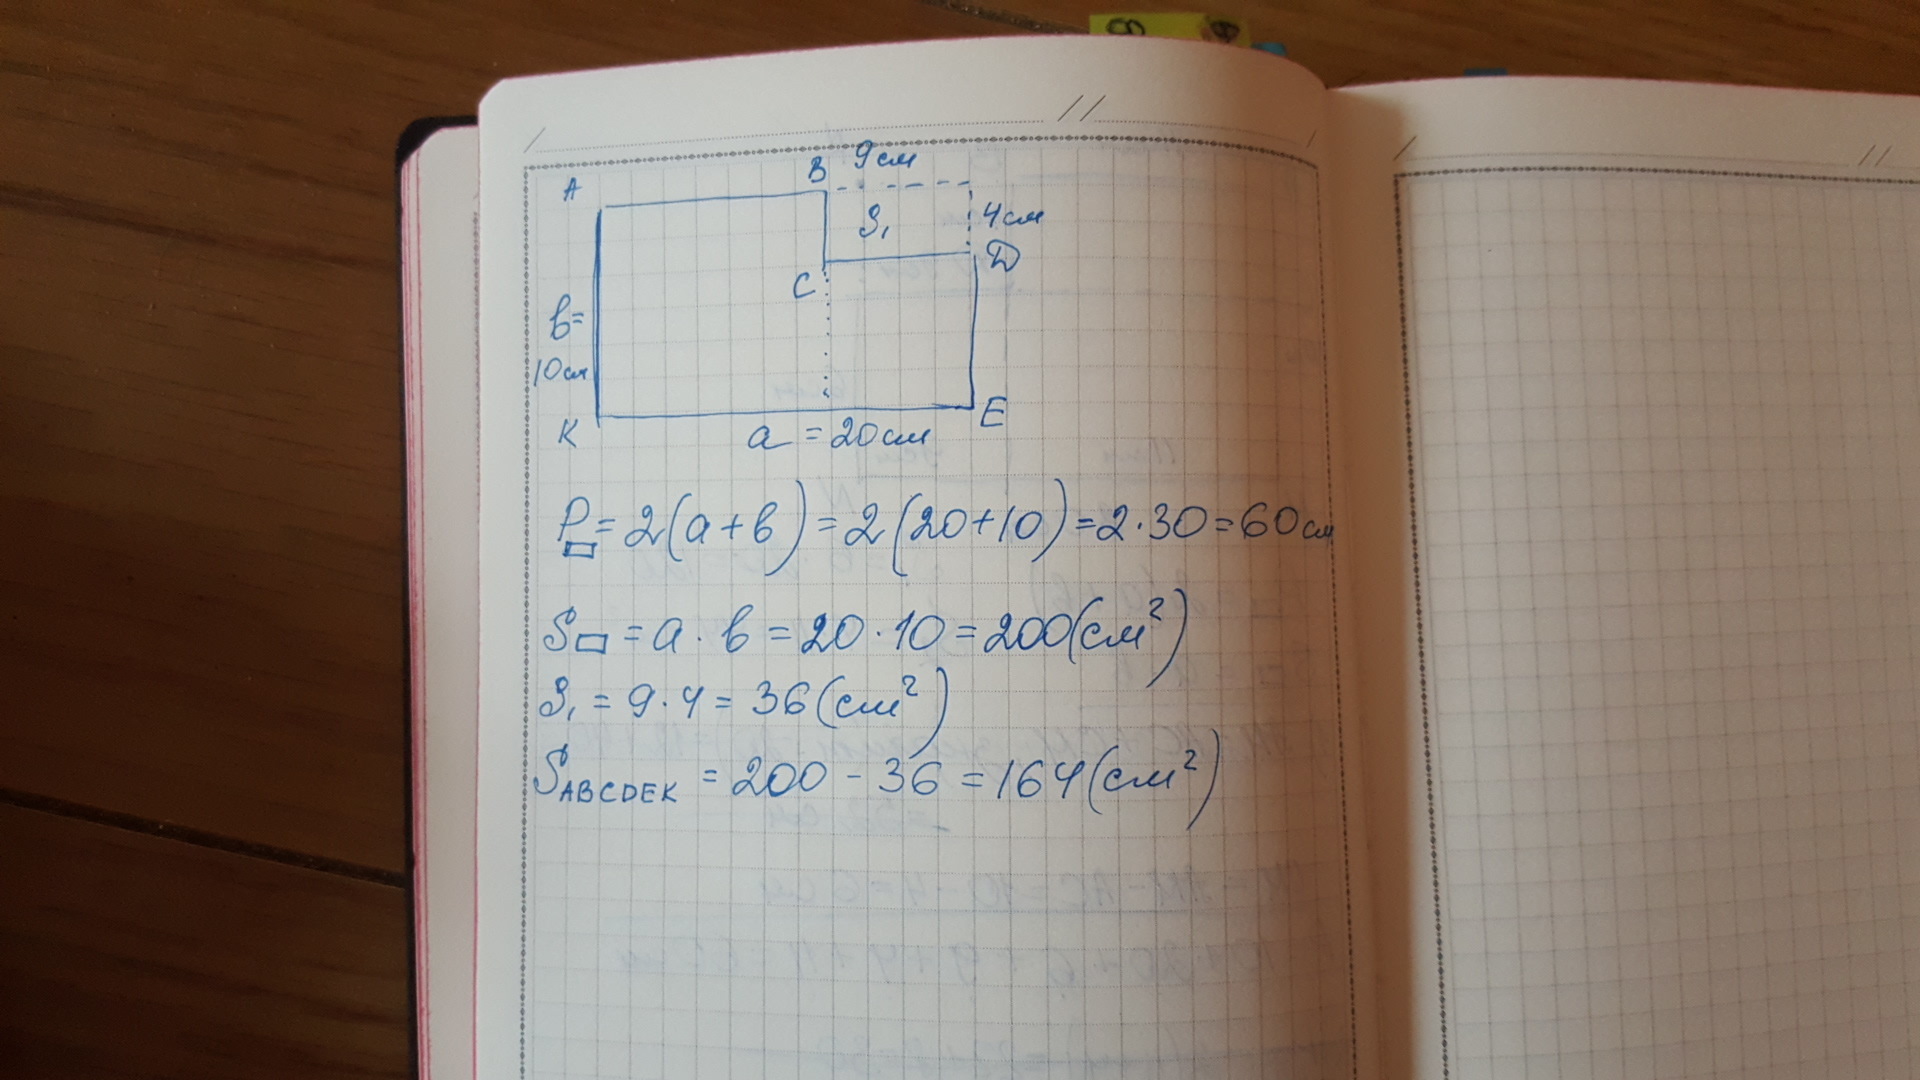 8
B 9см
A
S₁ 4см
D
C
b=
10см
K
E
a = 20см
P▭ = 2(a+b) = 2(20+10) = 2·30 = 60см
S▭ = a · b = 20 · 10 = 200(см²)
S₁ = 9·4 = 36(см²)
S ABCDEK = 200 - 36 = 164(см²)